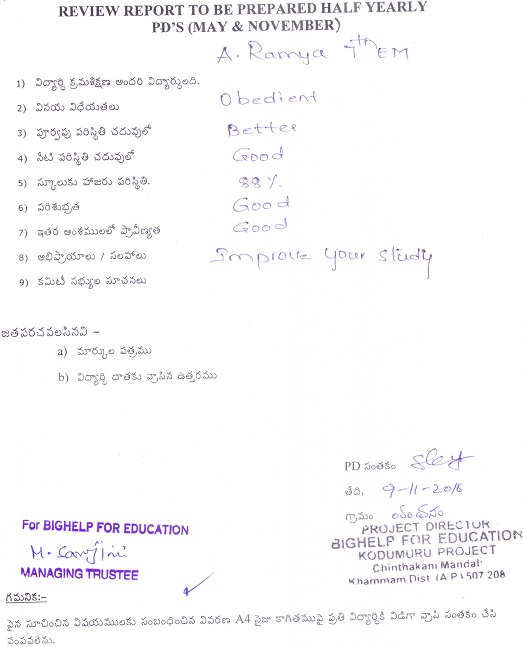 REVIEW REPORT TO BE PREPARED HALF YEARLY
PD'S (MAY & NOVEMBER)
A. Ramya 7th EM
1) విద్యార్థి క్రమశిక్షణ అందరి విద్యార్థులది.
2) వినయ విధేయతలు Obedient
3) పూర్వపు పరిస్థితి చదువులో Better
4) నేటి పరిస్థితి చదువులో Good
5) స్కూలుకు హాజరు పరిస్థితి. 88%
6) పరిశుభ్రత Good
7) ఇతర అంశములలో ప్రావీణ్యత Good
8) అభిప్రాయాలు / సలహాలు Improve your study
9) కమిటీ సభ్యుల సూచనలు
జతపరచవలసినవి –
a) మార్కుల పత్రము
b) విద్యార్థి దాతకు వ్రాసిన ఉత్తరము
PD సంతకం
తేది. 9-11-2016
గ్రామం
PROJECT DIRECTOR
BIGHELP FOR EDUCATION
KODUMURU PROJECT
Chinthakani Mandal:
Khammam Dist (A.P) 507 208
For BIGHELP FOR EDUCATION
M. Sarojini
MANAGING TRUSTEE
గమనిక:–
పైన సూచించిన విషయములకు సంబంధించిన వివరణ A4 సైజు కాగితముపై ప్రతి విద్యార్థికి విడిగా వ్రాసి సంతకం చేసి
పంపవలెను.